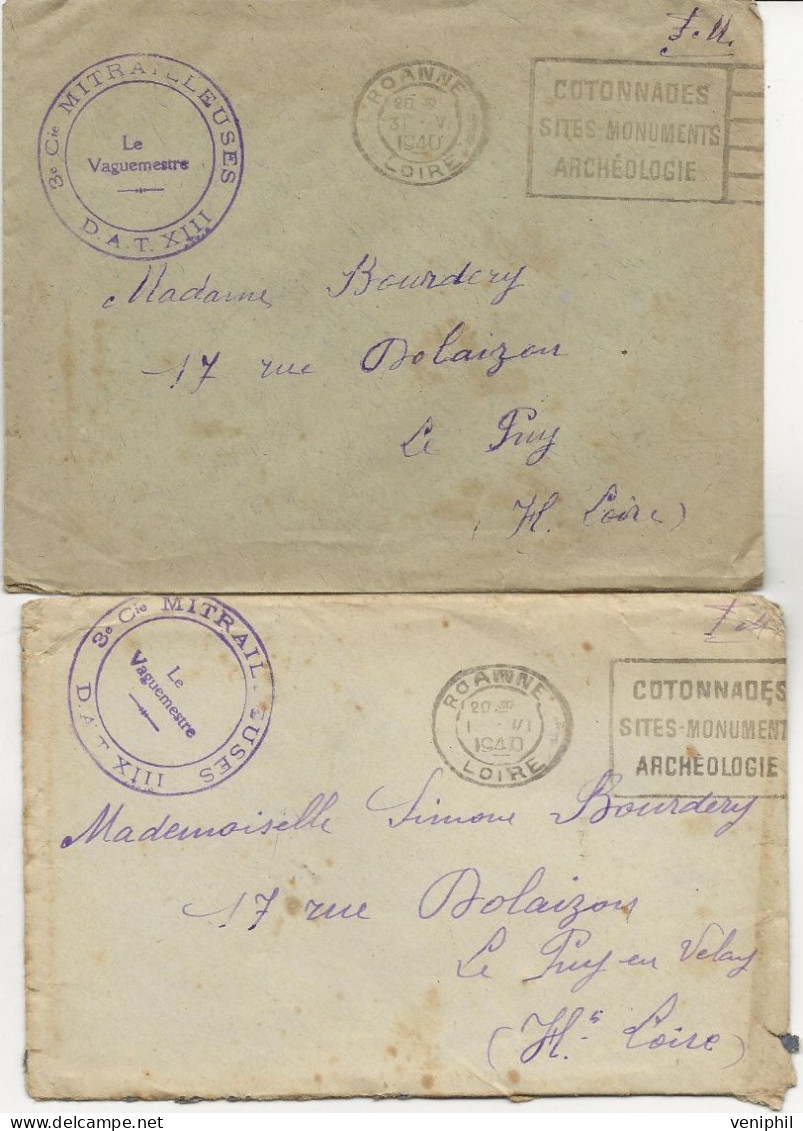 F.M.
3e Cie MITRAILLEUSES
Le
Vaguemestre
D.A.T. XIII
ROANNE
20 30
31 - V
1940
LOIRE
COTONNADES
SITES-MONUMENTS
ARCHÉOLOGIE
Madame Bourdery
17 rue Dolaizon
Le Puy
(H. Loire)
F.M.
3e Cie MITRAILLEUSES
Le
Vaguemestre
D.A.T. XIII
ROANNE
20 30
1 - VI
1940
LOIRE
COTONNADES
SITES-MONUMENT
ARCHÉOLOGIE
Mademoiselle Simone Bourdery
17 rue Dolaizon
Le Puy en Velay
(Hte Loire)
veniphil